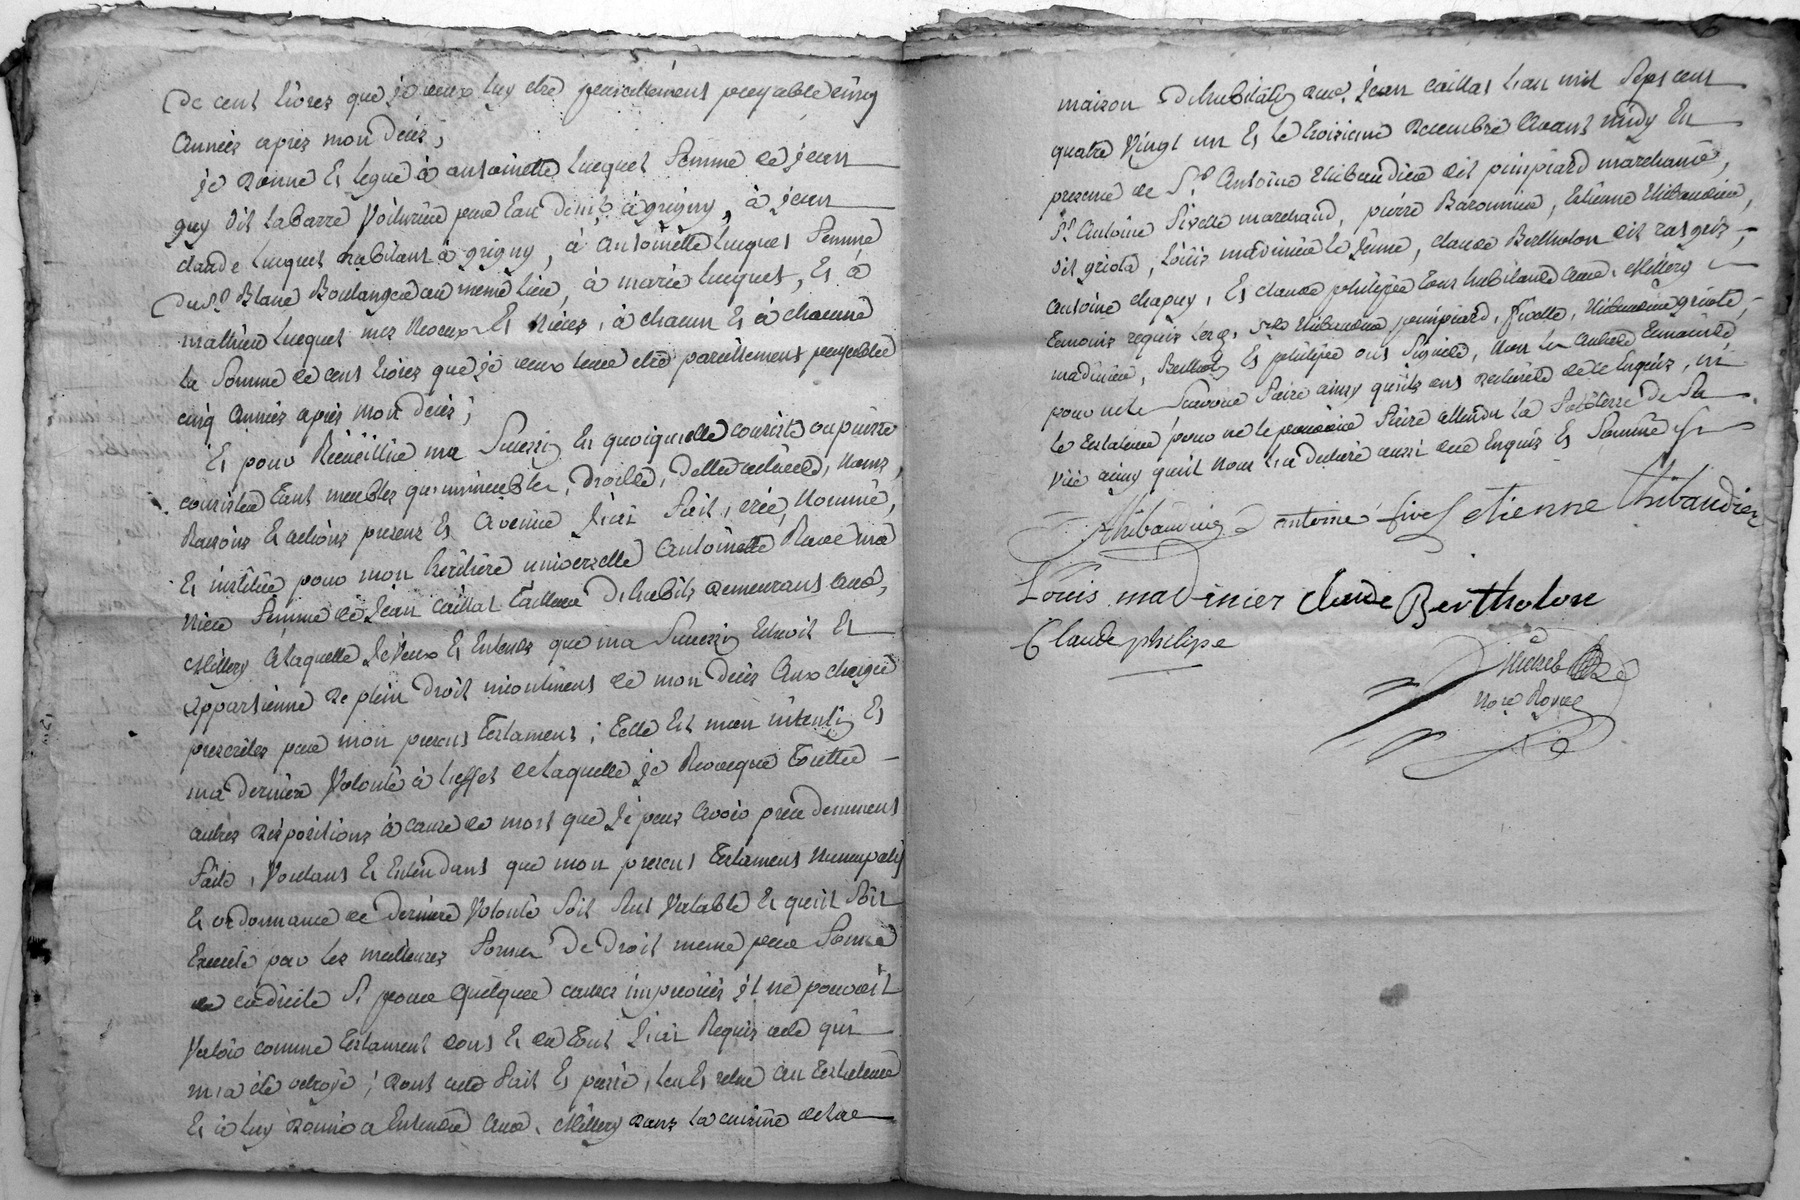 De cent livres que je veux luy etre pareillement payable cinq
années apres mon deces,
je donne et legue à antoinette Lucquet femme de jean
guy dit Labarre voiturier par Eau à grigny, à jean
claude Lucquet habitant à grigny, à Antoinette Lucquet femme
du Sr. Blanc Boulanger au meme lieu, à marie Lucquet, et à
mathieu Lucquet mes neveux et nieces, à chacun et à chacune
la somme de cent livres que je veux leur etre pareillement payable
cinq années après mon decès;
Et pour Recueillir ma Succession En quoiquelle consiste ou puisse
consister tant meubles qu'immeubles, droits, dettes actives, noms,
Raisons Et actions presens Et avenir j'ay fait, créé, nommé,
Et institué pour mon heritiere universelle Antoinette ma
niece femme de Jean Caillat Tailleur d'habits demeurant aud.
Millery à laquelle je veux Et Entends que ma Succession Echoit Et
appartienne de plein droit incontinent de mon deces aux charges
prescrites par mon present testament; telle Est mon intention Et
ma derniere volonté à l'effet de laquelle je Revoque toutte
autres dispositions à cause de mort que je peus avoir precedemment
faite, voulant Et Entendant que mon present testament nuncupatif
Et ordonnance de derniere volonté soit seul valable Et qu'il soit
Executé par les meilleures formes de droit meme par forme
de codicile si pour quelques causes imprevües il ne pouvoit
valoir comme testament dont Et du tout j'ay Requis acte qui
m'a été octroyé; dont acte fait Et passé, lu Et relu au testateur
Et à luy donné a Entendre aud. Millery dans la cuisine de la
maison d'habitation dud. Jean Caillat l'an mil sept cent
quatre vingt un Et le troisieme Decembre avant midy En
presence de Sr. Antoine thibaudier dit pimpiard marchand,
Sr. Antoine fivelle marchand, pierre Baronnier, Estienne thibaudier,
dit griota, Louis madinier le jeune, claude Bertholon dit
antoine chapuy, Et claude philippe tous habitants aud. Millery
temoins requis Lesq. Srs thibaudier pimpiard, fivelle, thibaudier griote,
madinier, Bertholon Et philippe ont signé, non les autres temoins
pour ne le savoir faire ainsy qu'ils ont declaré de ce Enquis, ni
le testateur pour ne le pouvoir faire attendu la foiblesse de sa
vüe ainsy qu'il nous l'a declaré aussi de ce Enquis Et sommé
Thibaudier antoine five etienne thibaudier
Louis madinier claude Bertholon
Claude philipe
Nore Royal